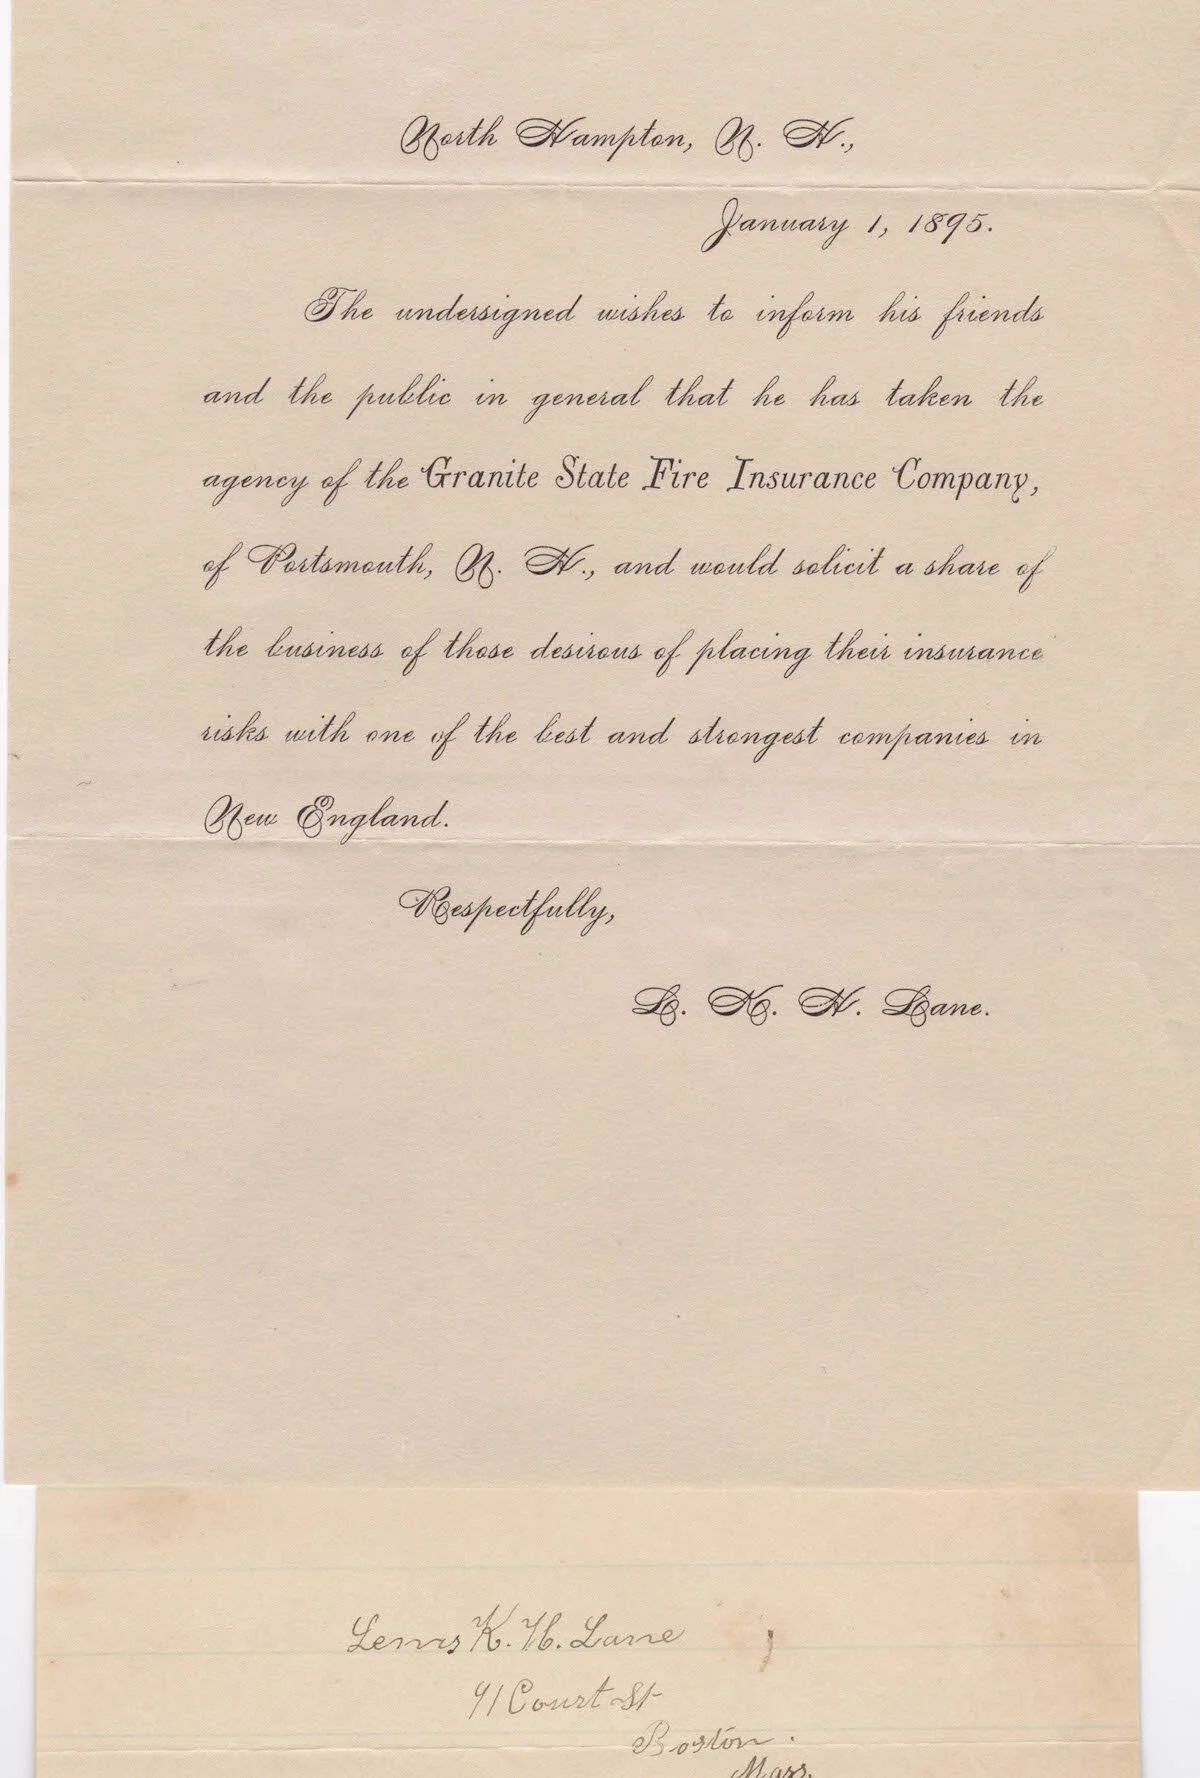 North Hampton, N. H.,
January 1, 1895.
The undersigned wishes to inform his friends
and the public in general that he has taken the
agency of the Granite State Fire Insurance Company,
of Portsmouth, N. H., and would solicit a share of
the business of those desirous of placing their insurance
risks with one of the best and strongest companies in
New England.
Respectfully,
L. K. H. Lane.
Lewis K. H. Lane
91 Court St
Boston.
Mass.